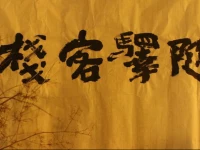 隨驛客棧